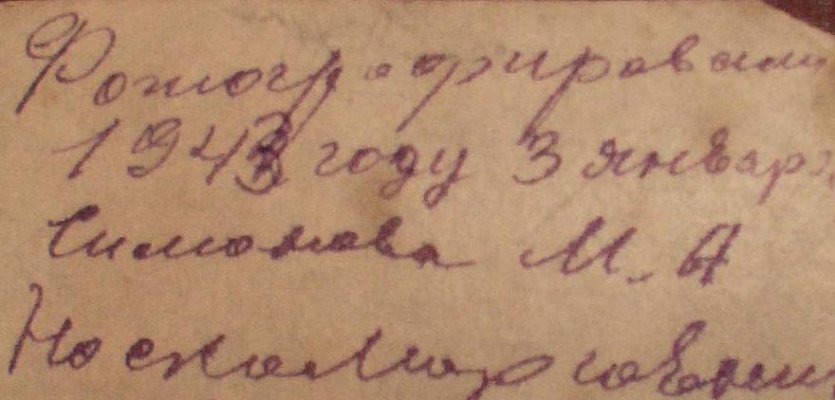 Фотографировали
1943 году 3 января
Симонова М. А